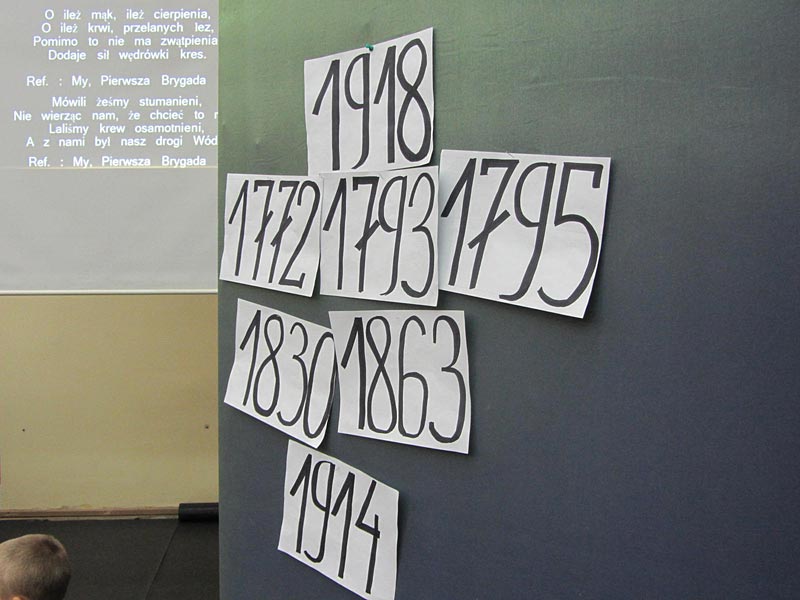 O ileż mąk, ileż cierpienia,
O ileż krwi, przelanych lez,
Pomimo to nie ma zwątpienia
Dodaje sił wędrówki kres.
Ref. : My, Pierwsza Brygada
Mówili żeśmy stumanieni,
Nie wierząc nam, że chcieć to
Laliśmy krew osamotnieni,
A z nami był nasz drogi
Ref. : My, Pierwsza Brygada
1918
1772 1793 1795
1830 1863
1914